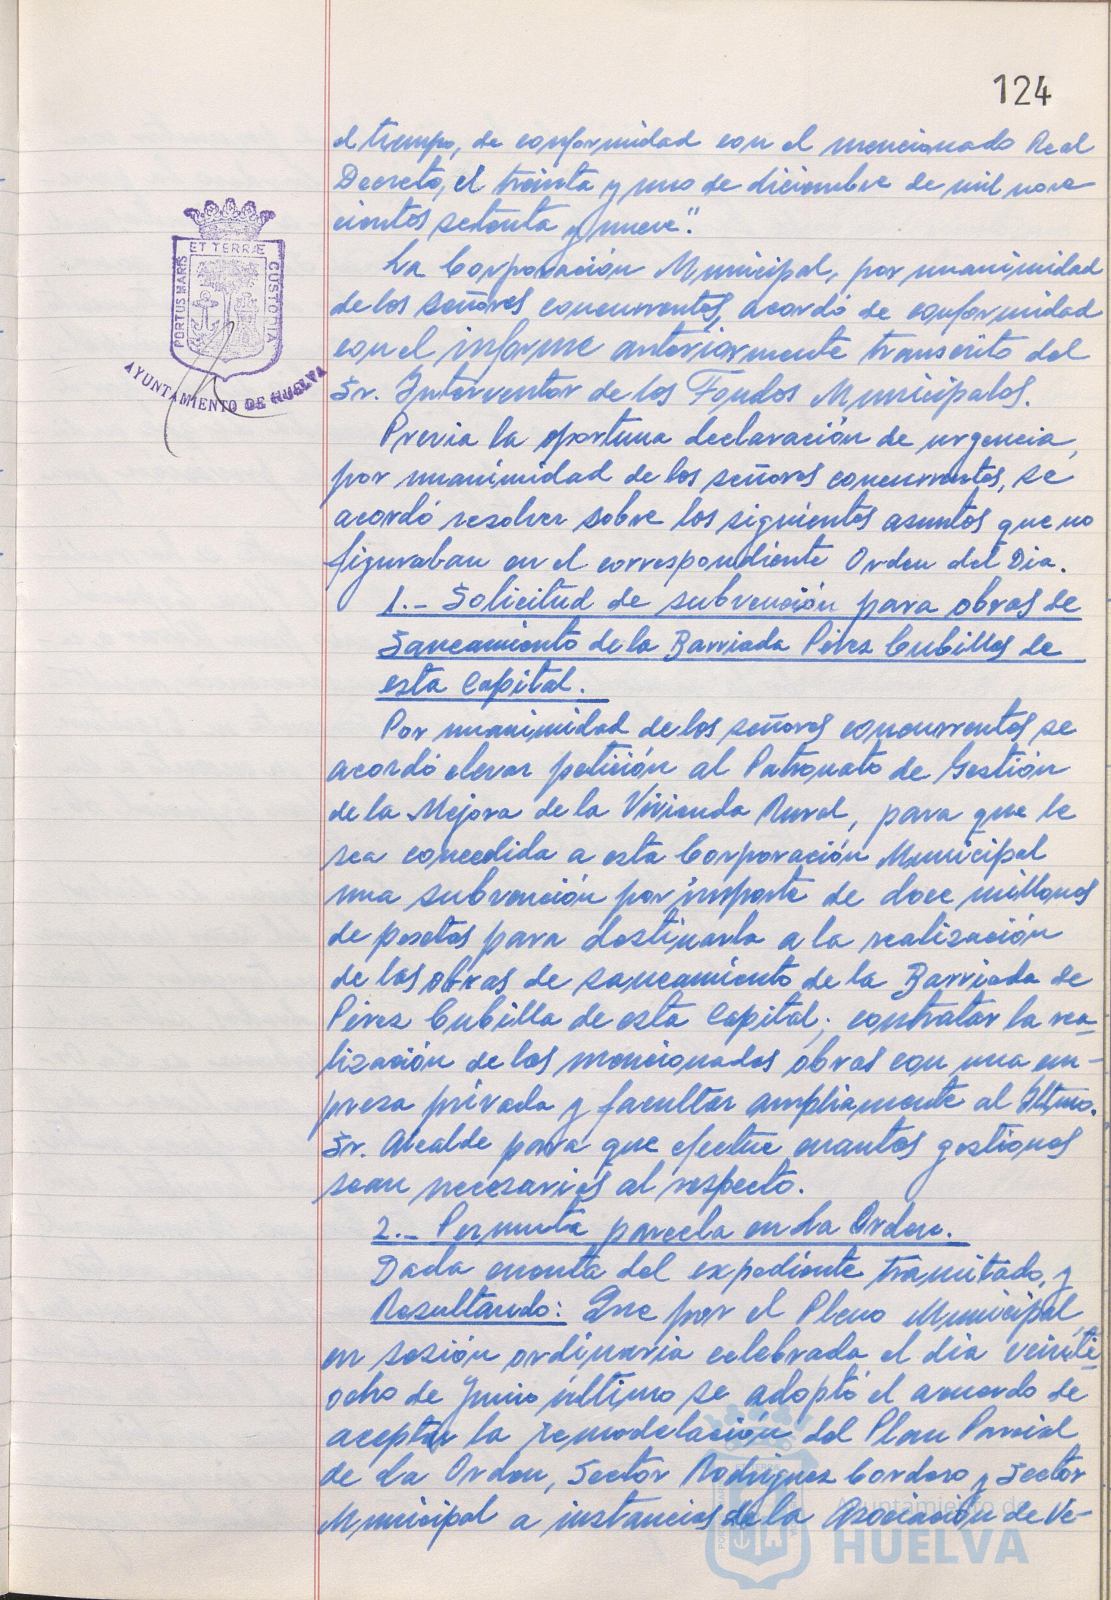 124
el tiempo, de conformidad con el mencionado Real
Decreto, el treinta y uno de diciembre de mil nove-
cientos setenta y nueve".
La Corporación Municipal, por unanimidad
de los señores concurrentes, acordó de conformidad
con el informe anteriormente transcrito del
Sr. Interventor de los Fondos Municipales.
Previa la oportuna declaración de urgencia,
por unanimidad de los señores concurrentes, se
acordó resolver sobre los siguientes asuntos que no
figuraban en el correspondiente Orden del Dia.
1.- Solicitud de subvención para obras de
Saneamiento de la Barriada Pérez Cubillas de
esta Capital.
Por unanimidad de los señores concurrentes se
acordó elevar petición al Patronato de Gestión
de la Mejora de la Vivienda Rural, para que le
sea concedida a esta Corporación Municipal
una subvención por importe de doce millones
de pesetas para destinarla a la realización
de las obras de saneamiento de la Barriada de
Pérez Cubilla de esta Capital; contratar la rea-
lización de las mencionadas obras con una em-
presa privada y facultar ampliamente al Iltmo.
Sr. Alcalde para que efectue cuantas gestiones
sean necesarias al respecto.
2.- Permuta parcela en La Orden.
Dada cuenta del expediente tramitado, y
Resultando: Que por el Pleno Municipal,
en sesión ordinaria celebrada el dia veinti-
ocho de Junio último se adoptó el acuerdo de
aceptar la remodelación del Plan Parcial
de La Orden, Sector Rodriguez Cordero y Sector
Municipal a instancias de la Asociación de Ve-
PORTUS MARIS ET TERRÆ CUSTODIA
AYUNTAMIENTO DE HUELVA
Ayuntamiento de
HUELVA